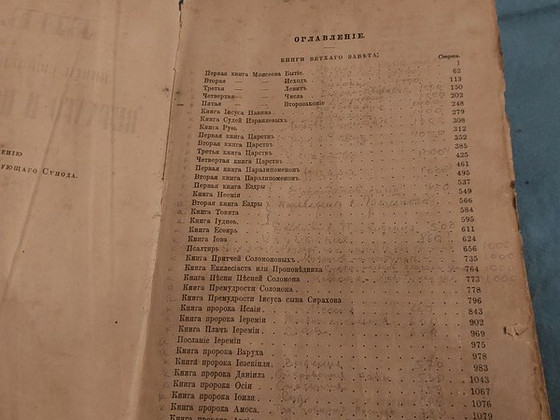 ОГЛАВЛЕНІЕ.
КНИГИ ВЕТХАГО ЗАВѢТА:
Стран.
Первая книга Моисеева Бытіе. 1
Вторая — — Исходъ 62
Третья — — Левитъ 113
Четвертая — — Числа 150
Пятая — — Второзаконіе 202
Книга Іисуса Навина. 248
Книга Судей Израилевыхъ 279
Книга Руѳь. 308
Первая книга Царствъ 312
Вторая книга Царствъ 352
Третья книга Царствъ 385
Четвертая книга Царствъ 425
Первая книга Паралипоменонъ 461
Вторая книга Паралипоменонъ 495
Первая книга Ездры 537
Книга Нееміи 549
Вторая книга Ездры 566
Книга Товита 584
Книга Іудиѳь. 595
Книга Есѳирь 611
Книга Іова 624
Псалтирь 656
Книга Притчей Соломоновыхъ. 735
Книга Екклесіаста или Проповѣдника 764
Книга Пѣсни Пѣсней Соломона 773
Книга Премудрости Соломона 778
Книга Премудрости Іисуса сына Сирахова 796
Книга пророка Исаіи 843
Книга пророка Іереміи 902
Книга Плачъ Іереміи 969
Посланіе Іереміи 975
Книга пророка Варуха 978
Книга пророка Іезекіиля 983
Книга пророка Даніила 1043
Книга пророка Осіи 1067
Книга пророка Іоиля 1076
Книга пророка Амоса. 1079
ЕНІЮ
УЮЩАГО СУНОДА.